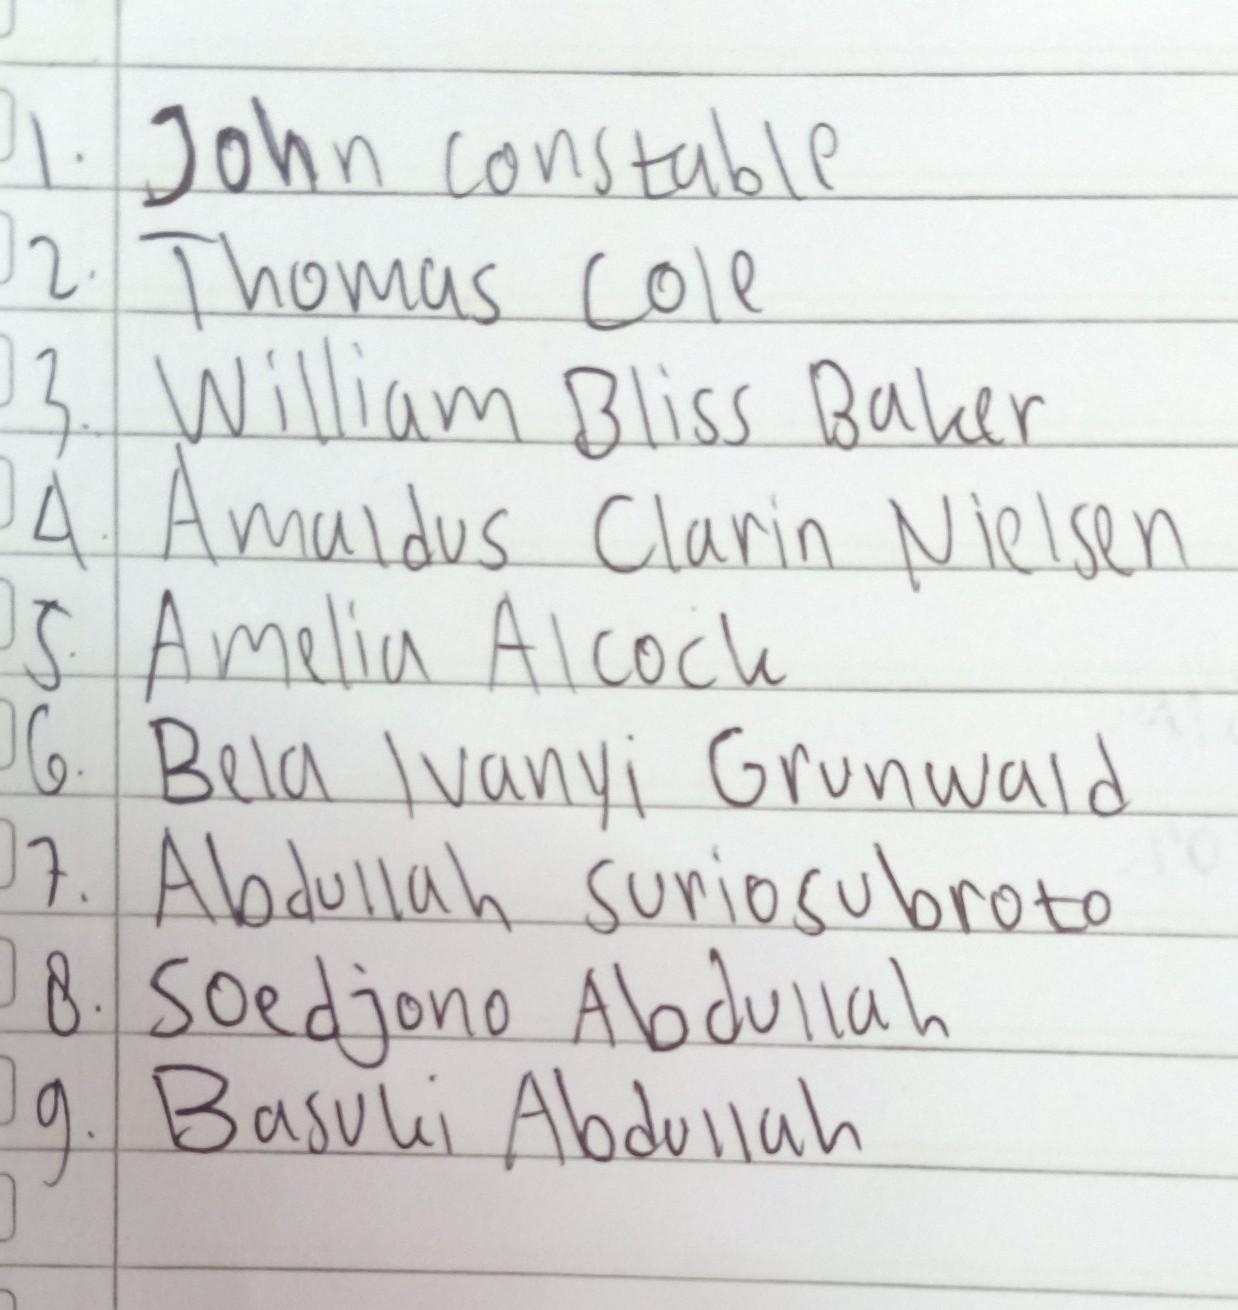 1. John constable
2. Thomas Cole
3. William Bliss Baker
4. Amaldus Clarin Nielsen
5. Amelia Alcock
6. Bela Ivanyi Grunwald
7. Abdullah suriosubroto
8. Soedjono Abdullah
9. Basuki Abdullah